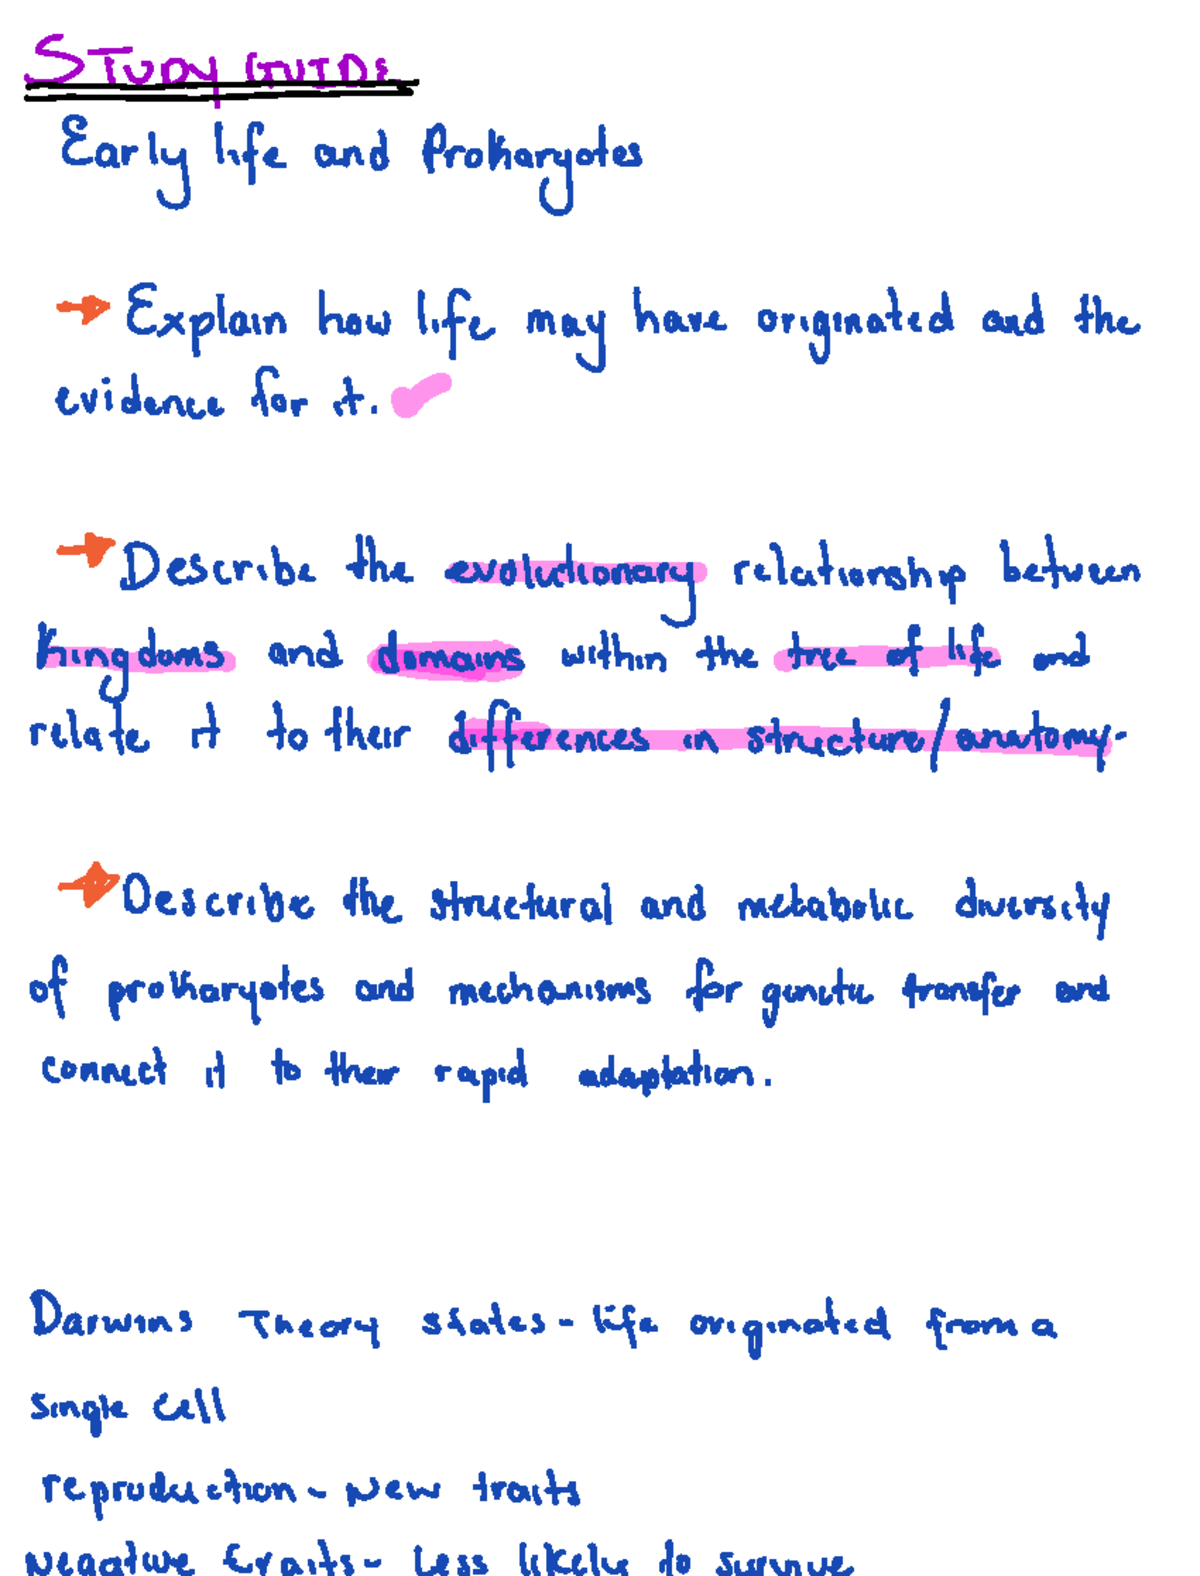 STUDY GUIDE
Early life and Prokaryotes
→ Explain how life may have originated and the
evidence for it.
→ Describe the evolutionary relationship between
kingdoms and domains within the tree of life and
relate it to their differences in structure/anatomy.
→ Describe the structural and metabolic diversity
of prokaryotes and mechanisms for genetic transfer and
connect it to their rapid adaptation.
Darwins Theory states - life originated from a
single cell
reproduction - New traits
Negative traits - Less likely to survive